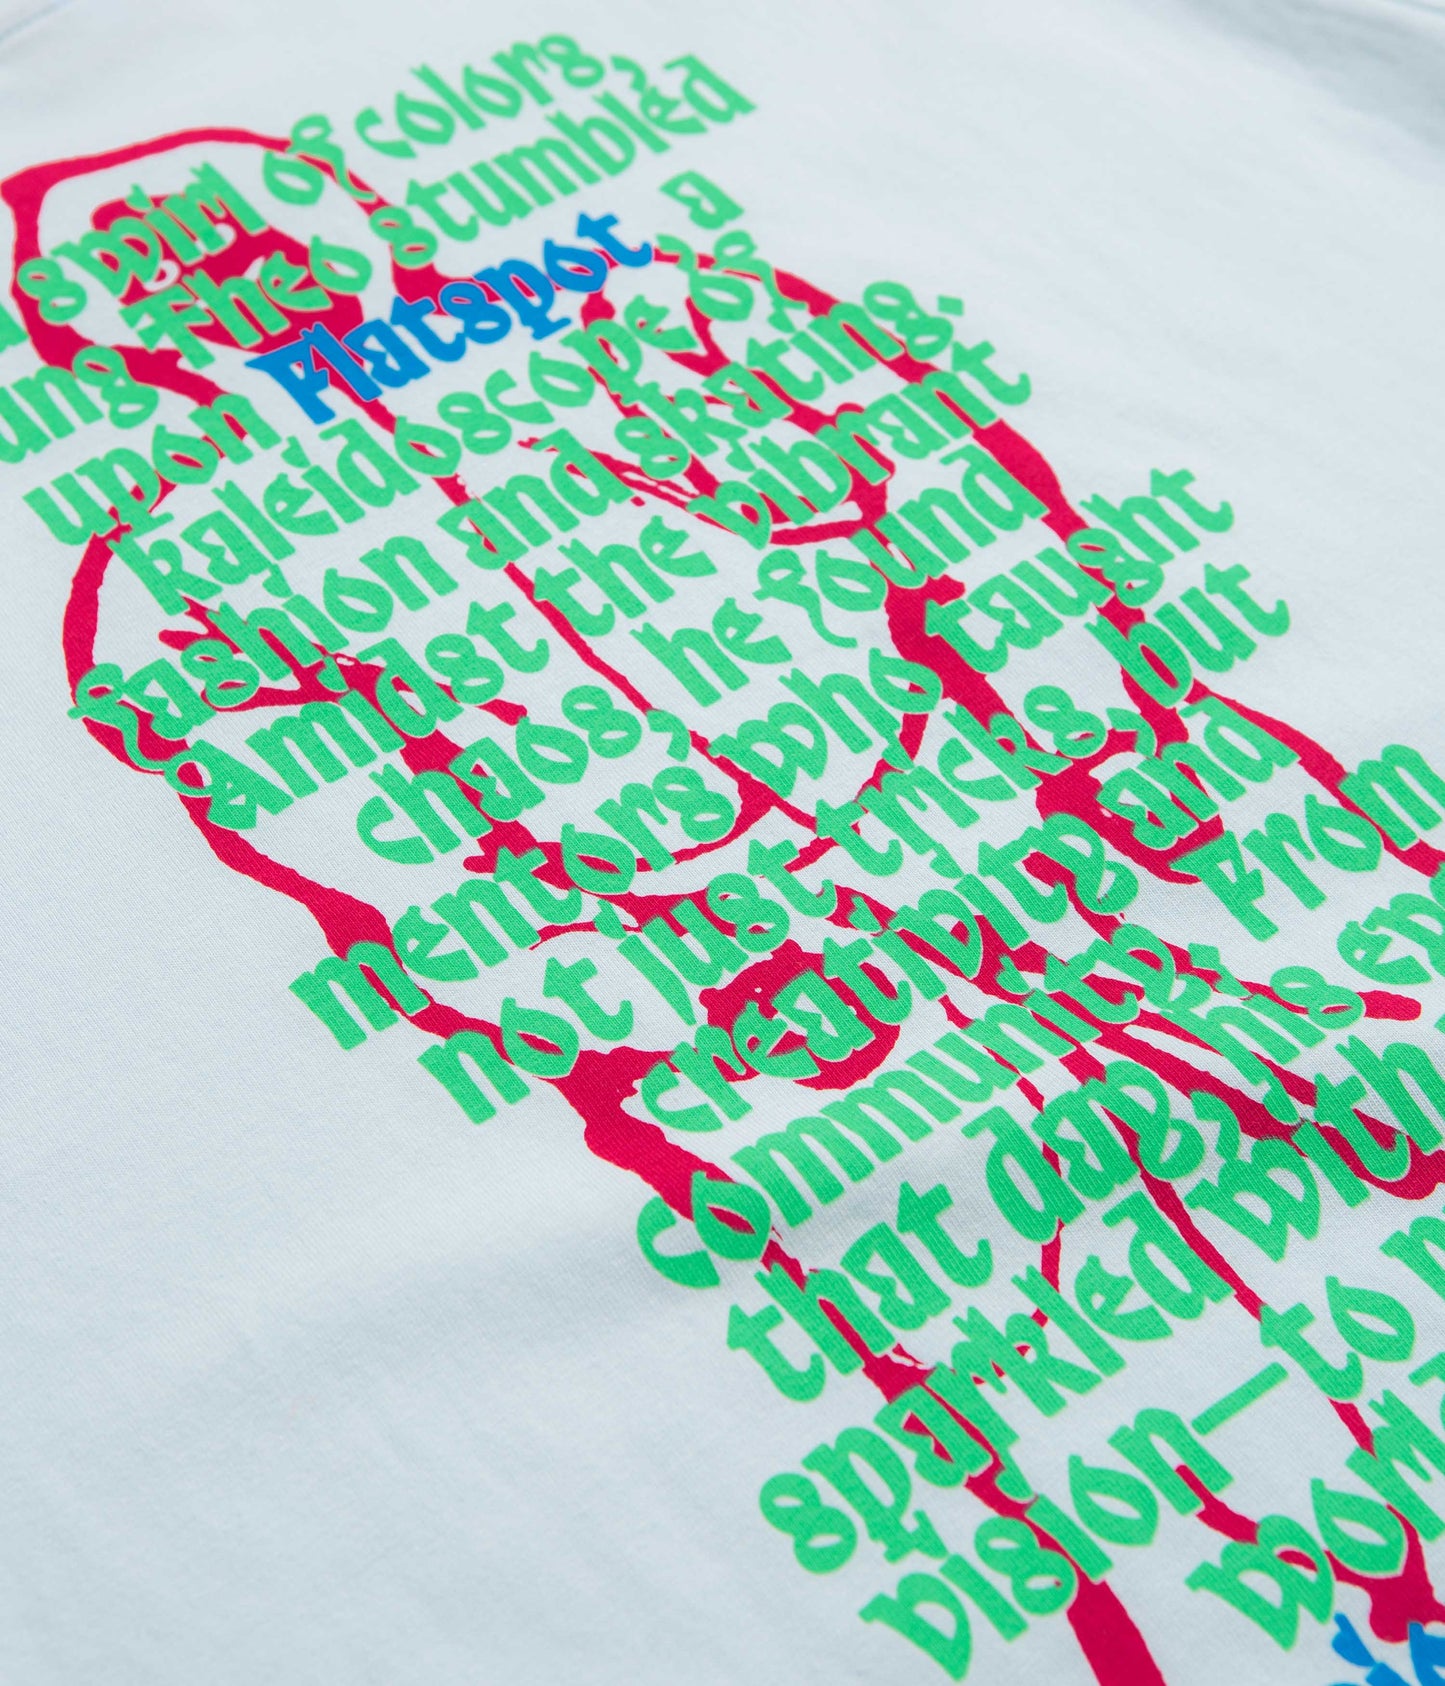 swirl of colors,
Theo stumbled
upon Flatspot, a
kaleidoscope of
fashion and skating.
Amidst the vibrant
chaos, he found
mentors who taught
not just tricks, but
creativity and
community. From
that day, his
sparkled with
vision—to